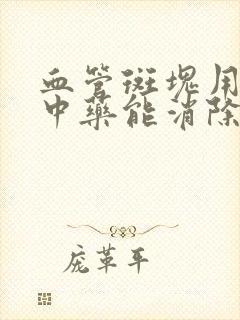 血管斑块用
中药能消除
庞革平